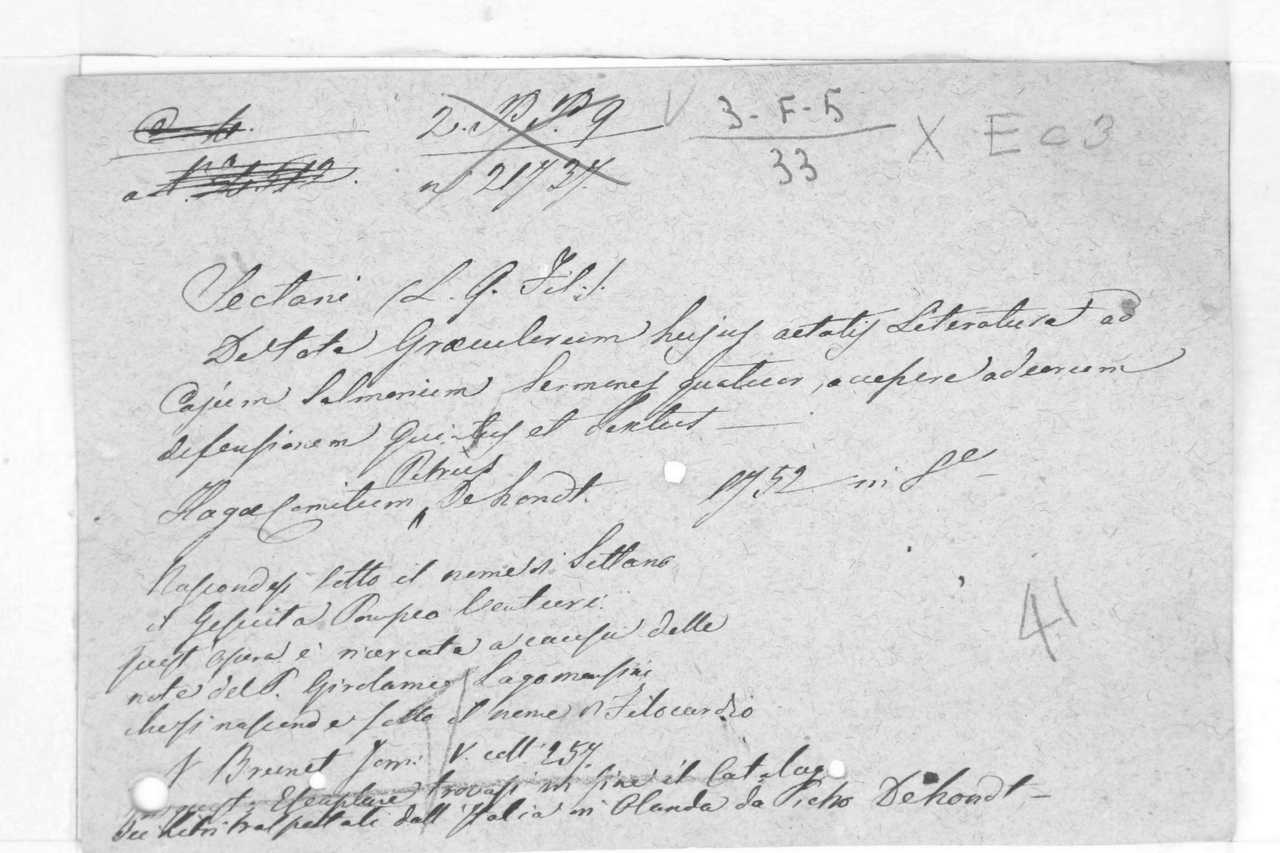 2. P. P. 9
n. 21737.
3-F-5
33
X E c 3
Sectani (L. Q. Fil.).
De tota Græculorum hujus aetatis Literatura ad
Cajum Salmorium Sermones quatuor, accepere ad eorum
defensionem Quintus et Sextus —
Petrus
Hagæ Comitum, De hondt. 1752 in 8e
Nascondesi sotto il nome di Settano
il Gesuita Pompeo Venturi.
quest' opera è ricercata a causa delle
note del P. Girolamo Lagomarsini
che si nasconde sotto il nome di Filocardio
41
V Brunet Tom: V. coll. 257.
quest. Esemplare trovasi in fine il Catalogo
dei libri trasportati dall' Italia in Olanda da Piero De hondt —